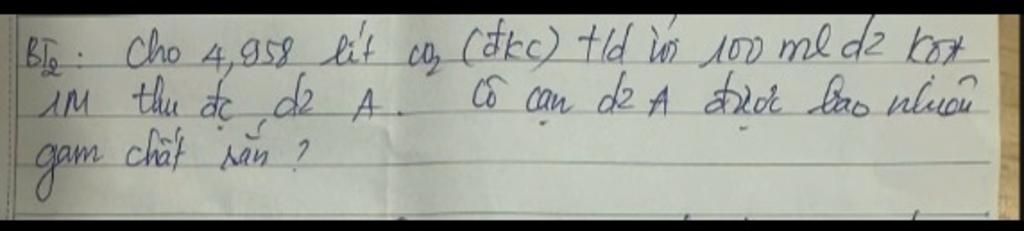 BT2: Cho 4,958 lít CO2 (đkc) t/d với 100 ml d2 KOH
1M thu đc d2 A. Cô cạn d2 A được bao nhiêu
gam chất rắn?